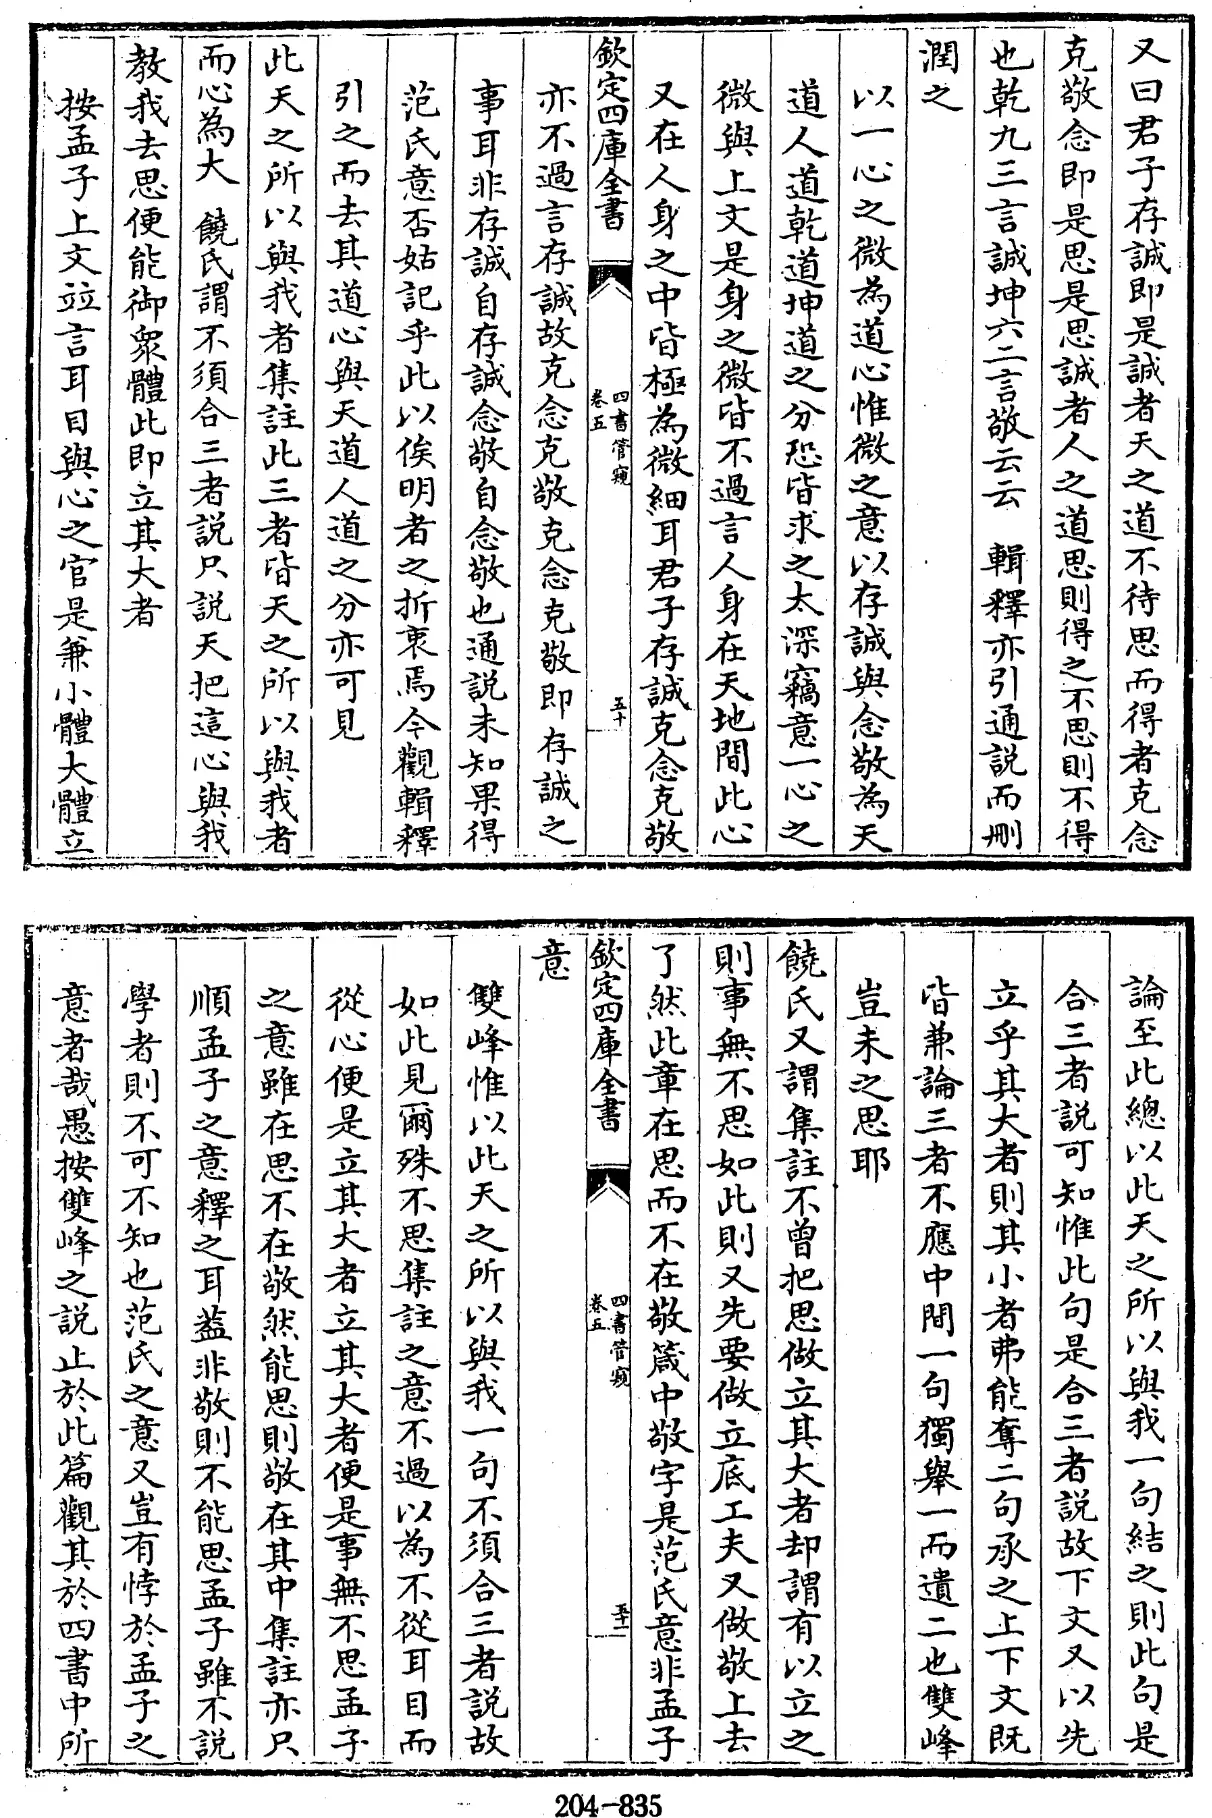 又曰君子存誠即是誠者天之道不待思而得者克念
克敬念即是思是思誠者人之道思則得之不思則不得
也乾九三言誠坤六二言敬云云　輯釋亦引通説而刪
潤之
以一心之微為道心惟微之意以存誠與念敬為天
道人道乾道坤道之分恐皆求之太深竊意一心之
微與上文是身之微皆不過言人身在天地間此心
又在人身之中皆極為微細耳君子存誠克念克敬
欽定四庫全書
四書管窺
卷五
五十
亦不過言存誠故克念克敬克念克敬即存誠之
事耳非存誠自存誠念敬自念敬也通説未知果得
范氏意否姑記乎此以俟明者之折衷焉今觀輯釋
引之而去其道心與天道人道之分亦可見
此天之所以與我者集註此三者皆天之所以與我者
而心為大　饒氏謂不須合三者説只説天把這心與我
教我去思便能御衆體此即立其大者
按孟子上文竝言耳目與心之官是兼小體大體立
論至此總以此天之所以與我一句結之則此句是
合三者説可知惟此句是合三者説故下文又以先
立乎其大者則其小者弗能奪二句承之上下文既
皆兼論三者不應中間一句獨舉一而遺二也雙峰
豈未之思耶
饒氏又謂集註不曾把思做立其大者却謂有以立之
則事無不思如此則又先要做立底工夫又做敬上去
了然此章在思而不在敬箴中敬字是范氏意非孟子
欽定四庫全書
四書管窺
卷五
五十一
意
雙峰惟以此天之所以與我一句不須合三者説故
如此見爾殊不思集註之意不過以為不從耳目而
從心便是立其大者立其大者便是事無不思孟子
之意雖在思不在敬然能思則敬在其中集註亦只
順孟子之意釋之耳葢非敬則不能思孟子雖不説
學者則不可不知也范氏之意又豈有悖於孟子之
意者哉愚按雙峰之説止於此篇觀其於四書中所
204-835